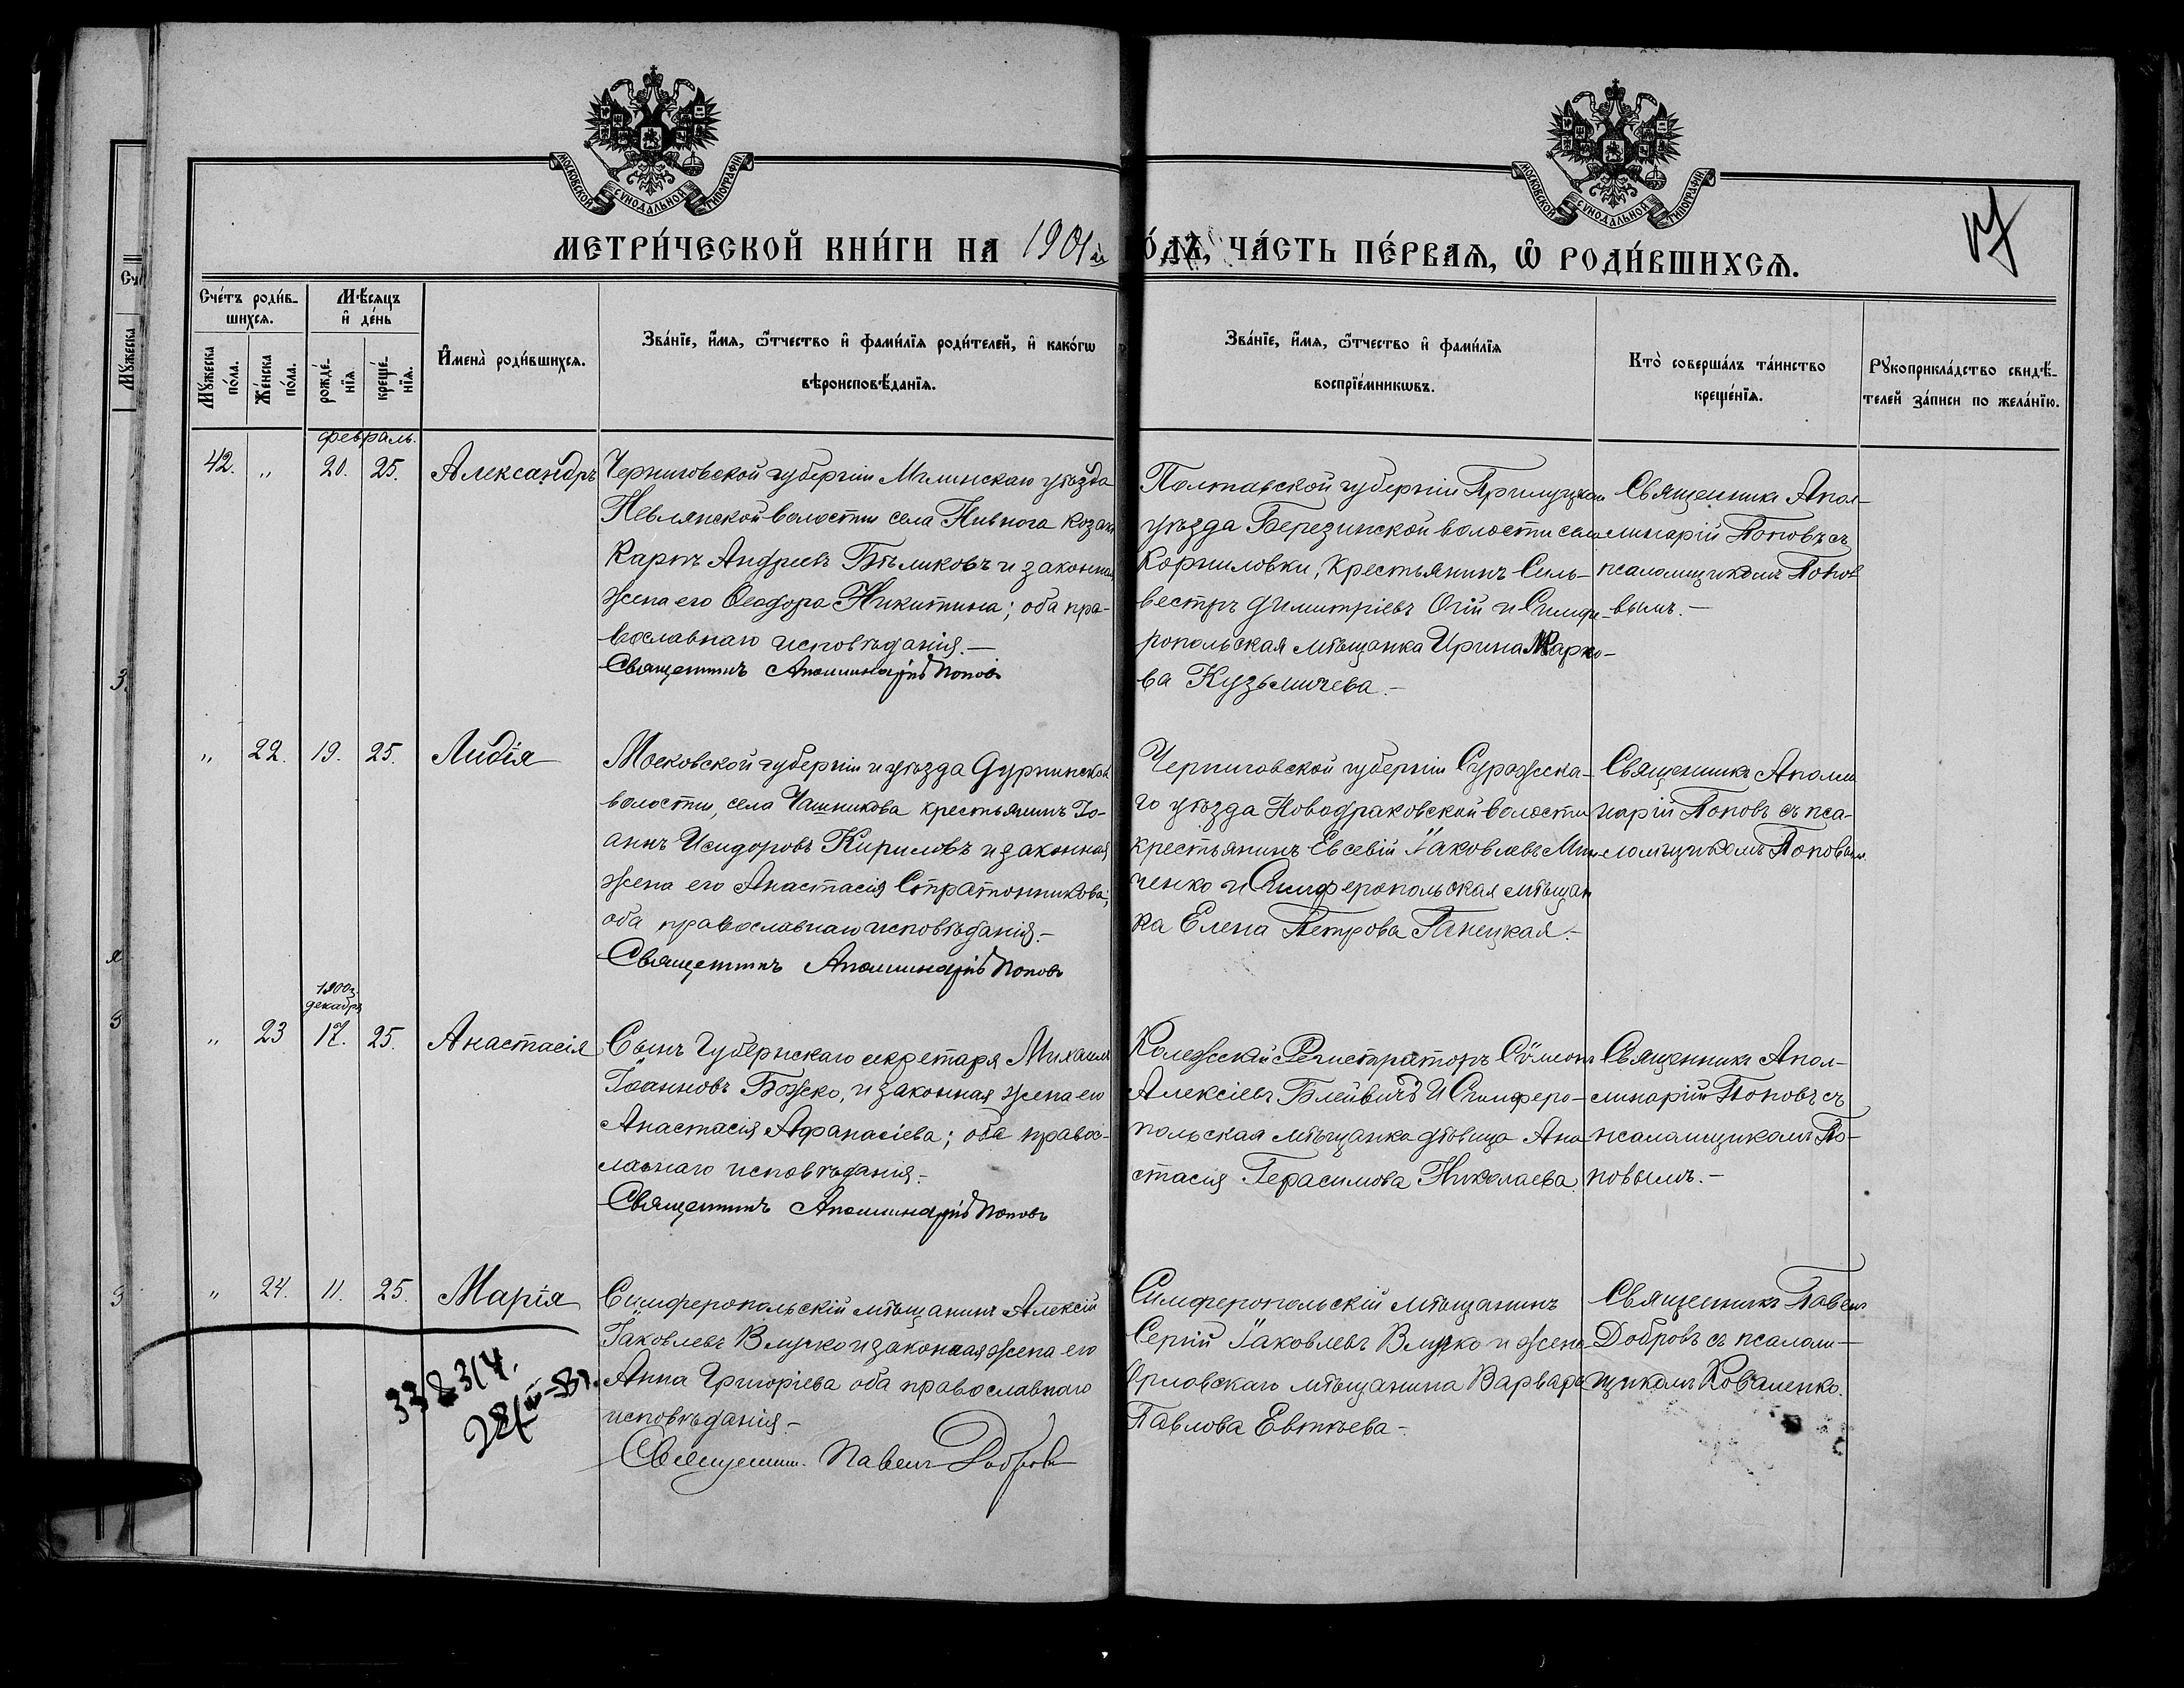 МОСКОВСКОЙ СѴНОДАЛЬНОЙ ТИПОГРАФІИ
МОСКОВСКОЙ СѴНОДАЛЬНОЙ ТИПОГРАФІИ
МЕТРИ́ЧЕСКОЙ КНИ́ГИ НА 1901 й
О́ДЪ, ЧА́СТЬ ПЕ́РВАѦ, Ѡ҆ РОДИ́ВШИХСѦ.
17
Сче́тъ роди́в-
шихсѧ.
Мꙋ́жеска
по́ла.
Же́нска
по́ла.
Мѣ́сѧцъ
и҆ де́нь
рожде́-
нїѧ.
креще́-
нїѧ.
И҆мена̀ роди́вшихсѧ.
Зва́нїе, и҆́мѧ, ѻ҆́тчество и҆ фами́лїѧ роди́телей, и҆ како́гѡ
вѣроисповѣ́данїѧ.
Зва́нїе, и҆́мѧ, ѻ҆́тчество и҆ фами́лїѧ
воспрїе́мникѡвъ.
Кто̀ соверша́лъ та́инство
креще́нїѧ.
Рꙋкоприкла́дство свидѣ́-
телей за́писи по жела́нїю.
февраль.
42. „ 20. 25. Александръ
Черниговской губерніи Мглинскаго уѣзда
Невлянской волости села Нивнога козакъ
Карпъ Андреевъ Бѣликовъ и законная
жена его Ѳеодора Никитина; оба пра-
вославнаго исповѣданія.—
Священникъ Аполлинарій Поповъ
Полтавской губерніи Прилуцкаго
уѣзда Березинской волости села
Корниловки, крестьянинъ Силь-
вестръ Димитріевъ Огій и Симфе-
ропольская мѣщанка Ирина Марко-
ва Кузьмичева.—
Священникъ Апол-
линарій Поповъ съ
псаломщикомъ Попо-
вымъ.—
„ 22. 19. 25. Лидія
Московской губерніи и уѣзда Дурнинской
волости, села Чашникова крестьянинъ Іо-
аннъ Исидоровъ Кириловъ и законная
жена его Анастасія Стратонникова;
оба православнаго исповѣданія.—
Священникъ Аполлинарій Поповъ
Черниговской губерніи Суражска-
го уѣзда Новодраковской волости
крестьянинъ Евсевій Іаковлевъ
ченко и Симферопольская мѣщан
ка Елена Петрова
Священникъ Аполли
нарій Поповъ съ пса-
ломщикомъ Поповымъ
1900 г.
декабрь
„ 23 17. 25. Анастасія
Сынъ Губернскаго секретаря Михаилъ
Іоанновъ Божко, и законная жена его
Анастасія Аѳанасіева; оба правос-
лавнаго исповѣданія.—
Священникъ Аполлинарій Поповъ
Колежскій Регистраторъ Сѵмеонъ
Алексіевъ Блейвичъ и Симферо-
польская мѣщанка дѣвица Ана
стасія Герасимова Николаева.
Священникъ Апол-
линарій Поповъ съ
псаломщикомъ По-
повымъ.—
„ 24. 11. 25. Марія
Симферопольскій мѣщанинъ Алексій
Іаковлевъ Влучко и законная жена его
Анна Григоріева оба православнаго
исповѣданія.—
Священник. Павелъ Добровъ
Симферопольскій мѣщанинъ
Сергій Іаковлевъ Влучко и жена
Орловскаго мѣщанина Варвара
Павлова Евтѣева.—
Священникъ Павелъ
Добровъ съ псалом-
щикомъ Коваленко.
338314.